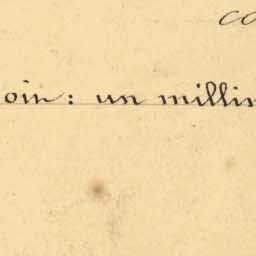 co
oin: un millim